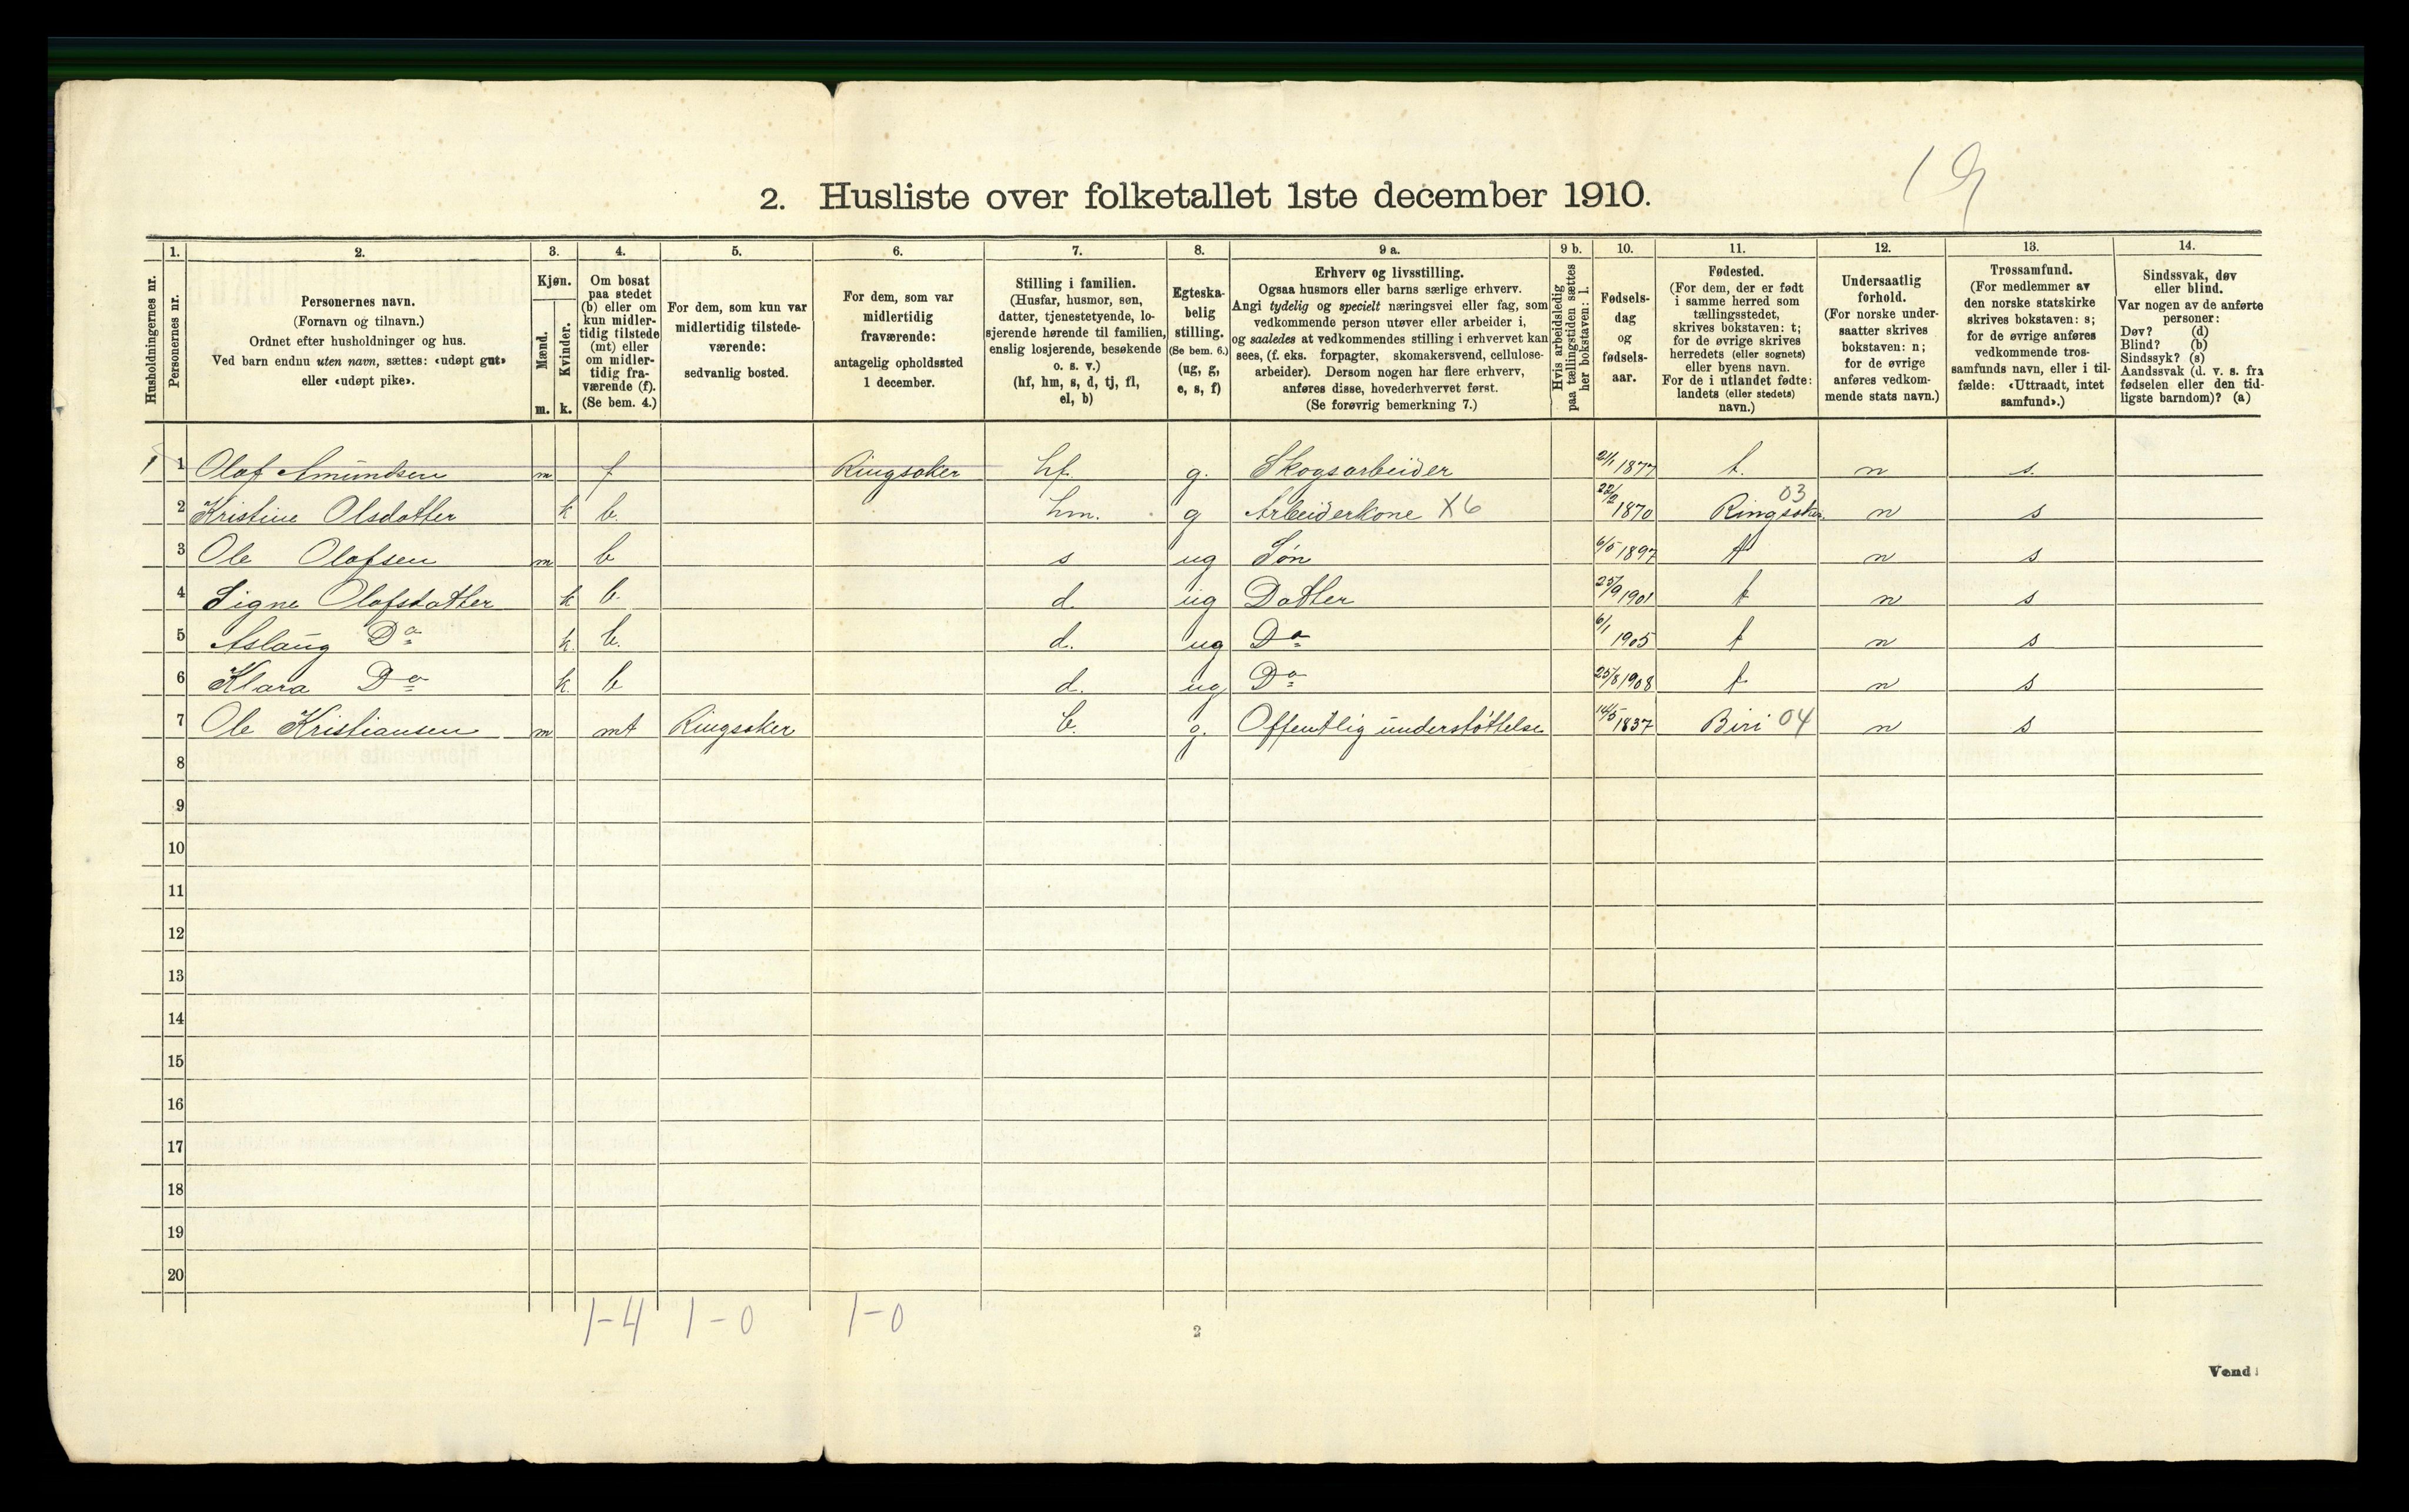 19
2. Husliste over folketallet 1ste december 1910.
Husholdningernes nr.
1. Personernes nr.
2. Personernes navn. (Fornavn og tilnavn.) Ordnet efter husholdninger og hus. Ved barn endnu uten navn, sættes: «udøpt gut» eller «udøpt pike».
3. Kjøn. Mænd. m. Kvinder. k.
4. Om bosat paa stedet (b) eller om kun midlertidig tilstede (mt) eller om midlertidig fraværende (f). (Se bem. 4.)
5. For dem, som kun var midlertidig tilstedeværende: sedvanlig bosted.
6. For dem, som var midlertidig fraværende: antagelig opholdssted 1 december.
7. Stilling i familien. (Husfar, husmor, søn, datter, tjenestetyende, losjerende hørende til familien, enslig losjerende, besøkende o. s. v.) (hf, hm, s, d, tj, fl, el, b)
8. Egteskabelig stilling. (Se bem. 6.) (ug, g, e, s, f)
9 a. Erhverv og livsstilling. Ogsaa husmors eller barns særlige erhverv. Angi tydelig og specielt næringsvei eller fag, som vedkommende person utøver eller arbeider i, og saaledes at vedkommendes stilling i erhvervet kan sees, (f. eks. forpagter, skomakersvend, cellulosearbeider). Dersom nogen har flere erhverv, anføres disse, hovederhvervet først. (Se forøvrig bemerkning 7.)
9 b. Hvis arbeidsledig paa tællingstiden sættes her bokstaven: l.
10. Fødselsdag og fødselsaar.
11. Fødested. (For dem, der er født i samme herred som tællingsstedet, skrives bokstaven: t; for de øvrige skrives herredets (eller sognets) eller byens navn. For de i utlandet fødte: landets (eller stedets) navn.)
12. Undersaatlig forhold. (For norske undersaatter skrives bokstaven: n; for de øvrige anføres vedkommende stats navn.)
13. Trossamfund. (For medlemmer av den norske statskirke skrives bokstaven: s; for de øvrige anføres vedkommende trossamfunds navn, eller i tilfælde: «Uttraadt, intet samfund».)
14. Sindssvak, døv eller blind. Var nogen av de anførte personer: Døv? (d) Blind? (b) Sindssyk? (s) Aandssvak (d. v. s. fra fødselen eller den tidligste barndom)? (a)
1 1 Olaf Amundsen m f Ringsaker hf. g. Skogsarbeider 2/1 1877 t. n s.
2 Kristine Olsdatter k b. hm. g Arbeiderkone X6 22/2 1870 Ringsaker 03 n s
3 Ole Olafsen m b s ug Søn 6/5 1897 t n s
4 Signe Olafsdatter k b. d. ug Datter 25/9 1901 t n s
5 Aslaug Do k. b. d. ug Do 6/1 1905 t n s
6 Klara Do k. b d. ug Do 25/8 1908 t n s
7 Ole Kristiansen m mt Ringsaker b. g. Offentlig understøttelse 14/5 1837 Biri 04 n s
8
9
10
11
12
13
14
15
16
17
18
19
20
1-4 1-0 1-0
2
Vend!